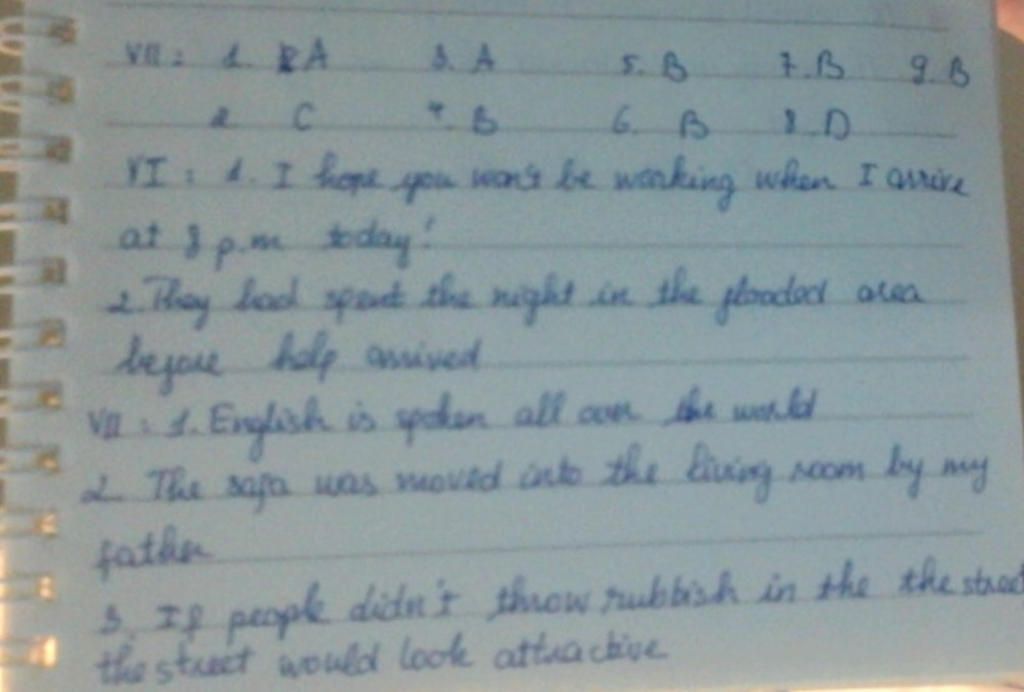 VII: 1. A 3. A 5. B 7. B 9. B
2 C 4. B 6. B 8. D
VI: 1. I hope you won't be working when I arrive
at 8 p.m today!
2. They had spent the night in the flooded area
before help arrived
VII: 1. English is spoken all over the world
2. The sofa was moved into the living room by my
father
3. If people didn't throw rubbish in the the street
the street would look attractive